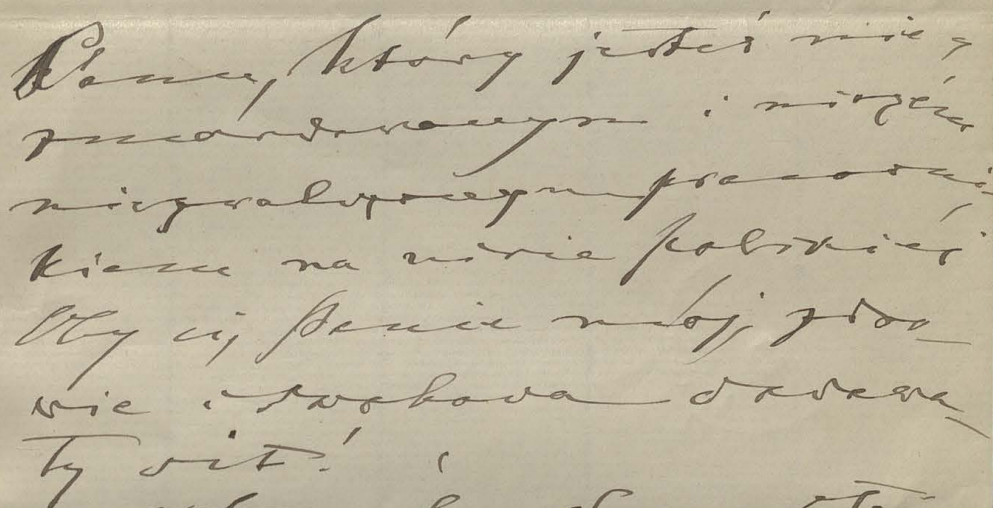 Panu, który jesteś nie
zmordowanym i niczém
pracowni
kiem na niwie polskiéj
Oby cię Panie mój, zdro-
wie i swoboda dodawa-
ły sił!